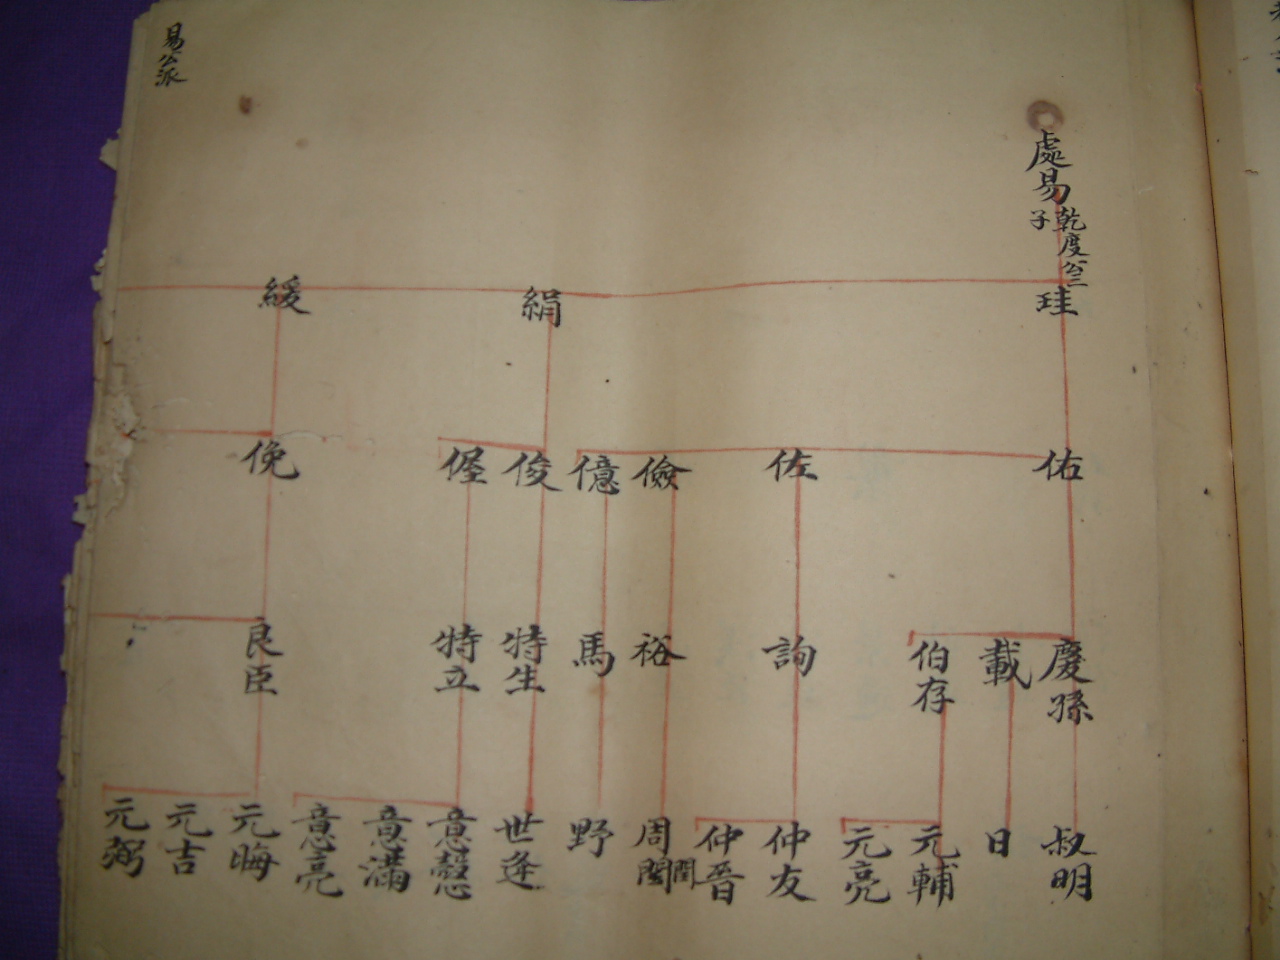 易公派
處易
乾度公三
子
珪
絹
緩
佑
佐
儉
億
俊
偓
俛
慶孫
載
伯存
詢
裕
馬
特生
特立
良臣
叔明
日
元輔
元亮
仲友
仲晋
周
野
世逢
意慤
意滿
意亮
元晦
元吉
元弼